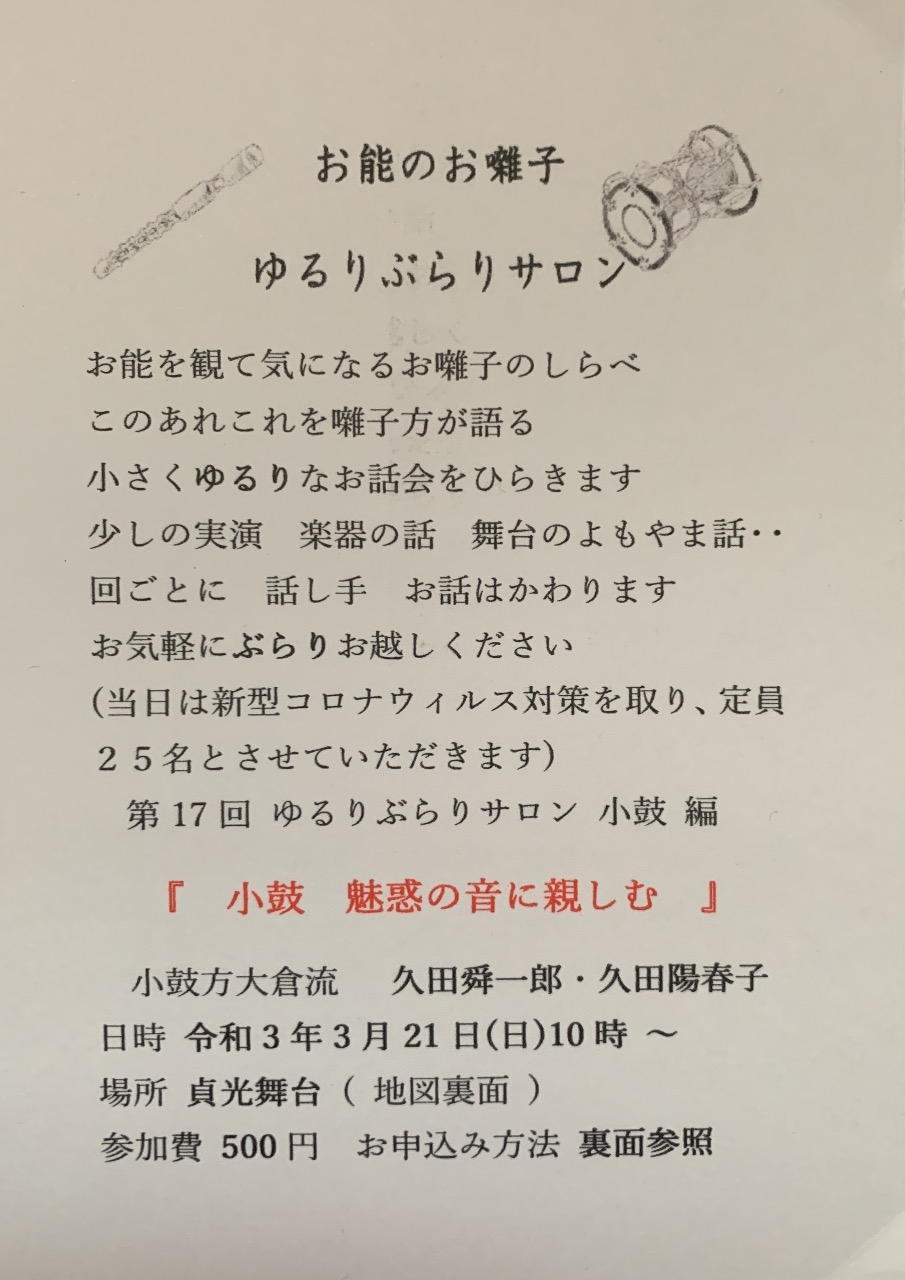 お能のお囃子
ゆるりぶらりサロン
お能を観て気になるお囃子のしらべ
このあれこれを囃子方が語る
小さくゆるりなお話会をひらきます
少しの実演　楽器の話　舞台のよもやま話・・
回ごとに　話し手　お話はかわります
お気軽にぶらりお越しください
(当日は新型コロナウィルス対策を取り、定員
２５名とさせていただきます)
第 17 回 ゆるりぶらりサロン 小鼓 編
『　小鼓　魅惑の音に親しむ　』
小鼓方大倉流　久田舜一郎・久田陽春子
日時 令和 3 年 3 月 21 日(日)10 時 ～
場所 貞光舞台 ( 地図裏面 )
参加費 500 円　お申込み方法 裏面参照